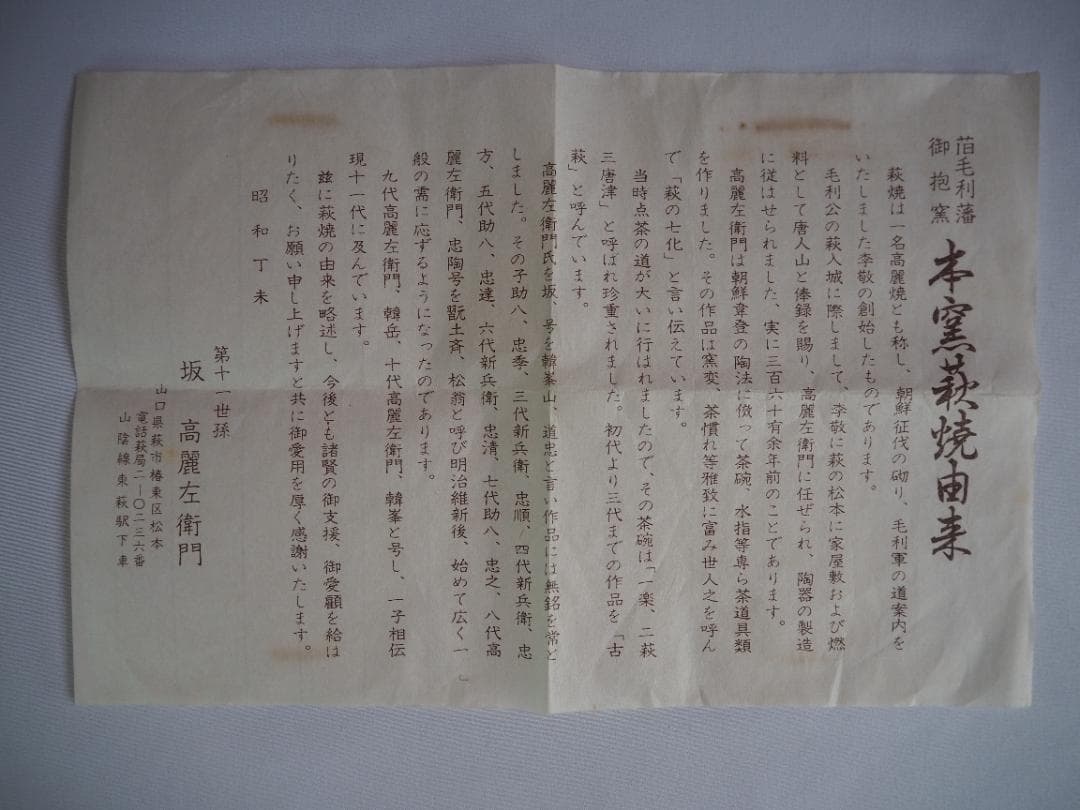 旧毛利藩
御抱窯
本窯萩焼由来
萩焼は一名高麗焼とも称し、朝鮮征伐の砌り、毛利軍の道案内を
いたしました李敬の創始したものであります。
毛利公の萩入城に際しまして、李敬に萩の松本に家屋敷および燃
料として唐人山と俸録を賜り、高麗左衛門に任ぜられ、陶器の製造
に従はせられました、実に三百六十有余年前のことであります。
高麗左衛門は朝鮮韋登の陶法に倣って茶碗、水指等専ら茶道具類
を作りました。その作品は窯変、茶慣れ等雅致に富み世人之を呼ん
で「萩の七化」と言い伝えています。
当時点茶の道が大いに行はれましたので、その茶碗は「一楽、二萩
三唐津」と呼ばれ珍重されました。初代より三代までの作品を「古
萩」と呼んでいます。
高麗左衛門氏を坂、号を韓峯山、道忠と言い作品には無銘を常と
しました。その子助八、忠季、三代新兵衛、忠順、四代新兵衛、忠
方、五代助八、忠達、六代新兵衛、忠清、七代助八、忠之、八代高
麗左衛門、忠陶号を翫土斉、松翁と呼び明治維新後、始めて広く一
般の需に応ずるようになったのであります。
九代高麗左衛門、韓岳、十代高麗左衛門、韓峯と号し、一子相伝
現十一代に及んでいます。
茲に萩焼の由来を略述し、今後とも諸賢の御支援、御愛顧を給は
りたく、お願い申し上げますと共に御愛用を厚く感謝いたします。
昭和丁未
第十一世孫
坂高麗左衛門
山口県萩市椿東区松本
電話萩局二―〇二三六番
山陰線東萩駅下車